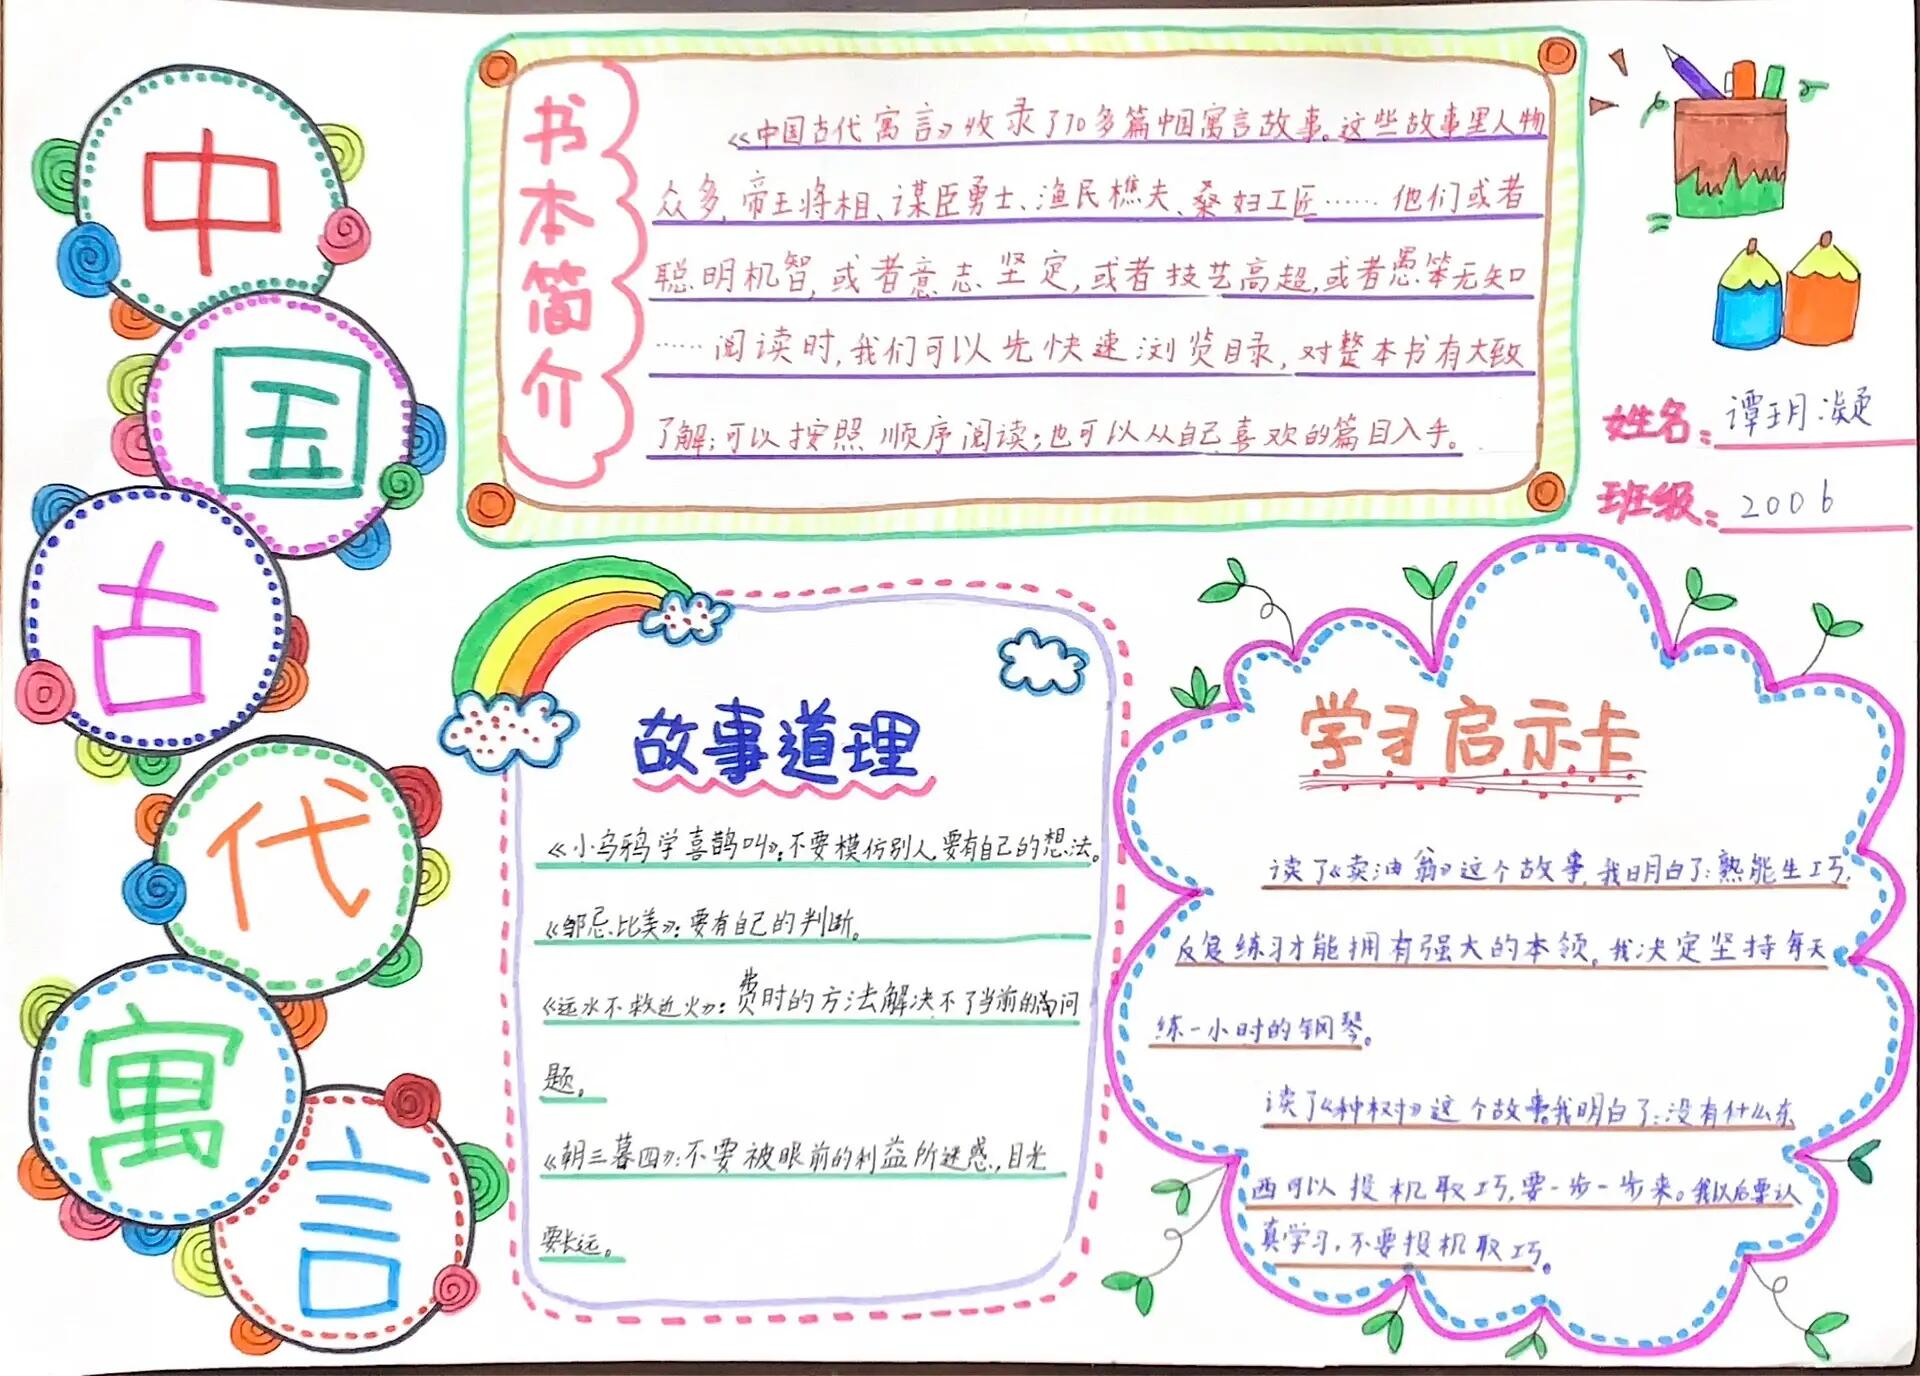 中
国
古
代
寓
言
书
本
简
介
《中国古代寓言》收录了70多篇中国寓言故事。这些故事里人物
众多,帝王将相、谋臣勇士、渔民樵夫、桑妇工匠……他们或者
聪明机智,或者意志坚定,或者技艺高超,或者愚笨无知
……阅读时,我们可以先快速浏览目录,对整本书有大致
了解;可以按照顺序阅读;也可以从自己喜欢的篇目入手。
姓名:谭玥凝
班级:2006
故事道理
《小乌鸦学喜鹊叫》:不要模仿别人要有自己的想法。
《邹忌比美》:要有自己的判断。
《远水不救近火》:费时的方法解决不了当前的问
题。
《朝三暮四》:不要被眼前的利益所迷惑,目光
要长远。
学习启示卡
读了《卖油翁》这个故事,我明白了:熟能生巧,
反复练习才能拥有强大的本领。我决定坚持每天
练一小时的钢琴。
读了《种树》这个故事我明白了:没有什么东
西可以投机取巧,要一步一步来。我以后要认
真学习,不要投机取巧。